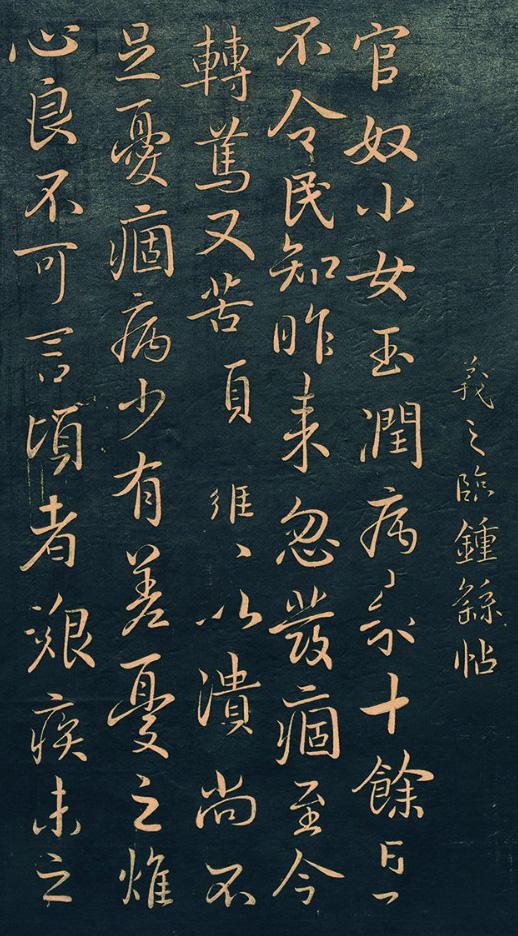 羲之臨鍾繇帖
官奴小女玉潤病来十餘日
不令民知昨来忽發痼至今
轉篤又苦頁以潰尚不
足憂痼病少有差憂之燋
心良不可言頃者艱疾未之